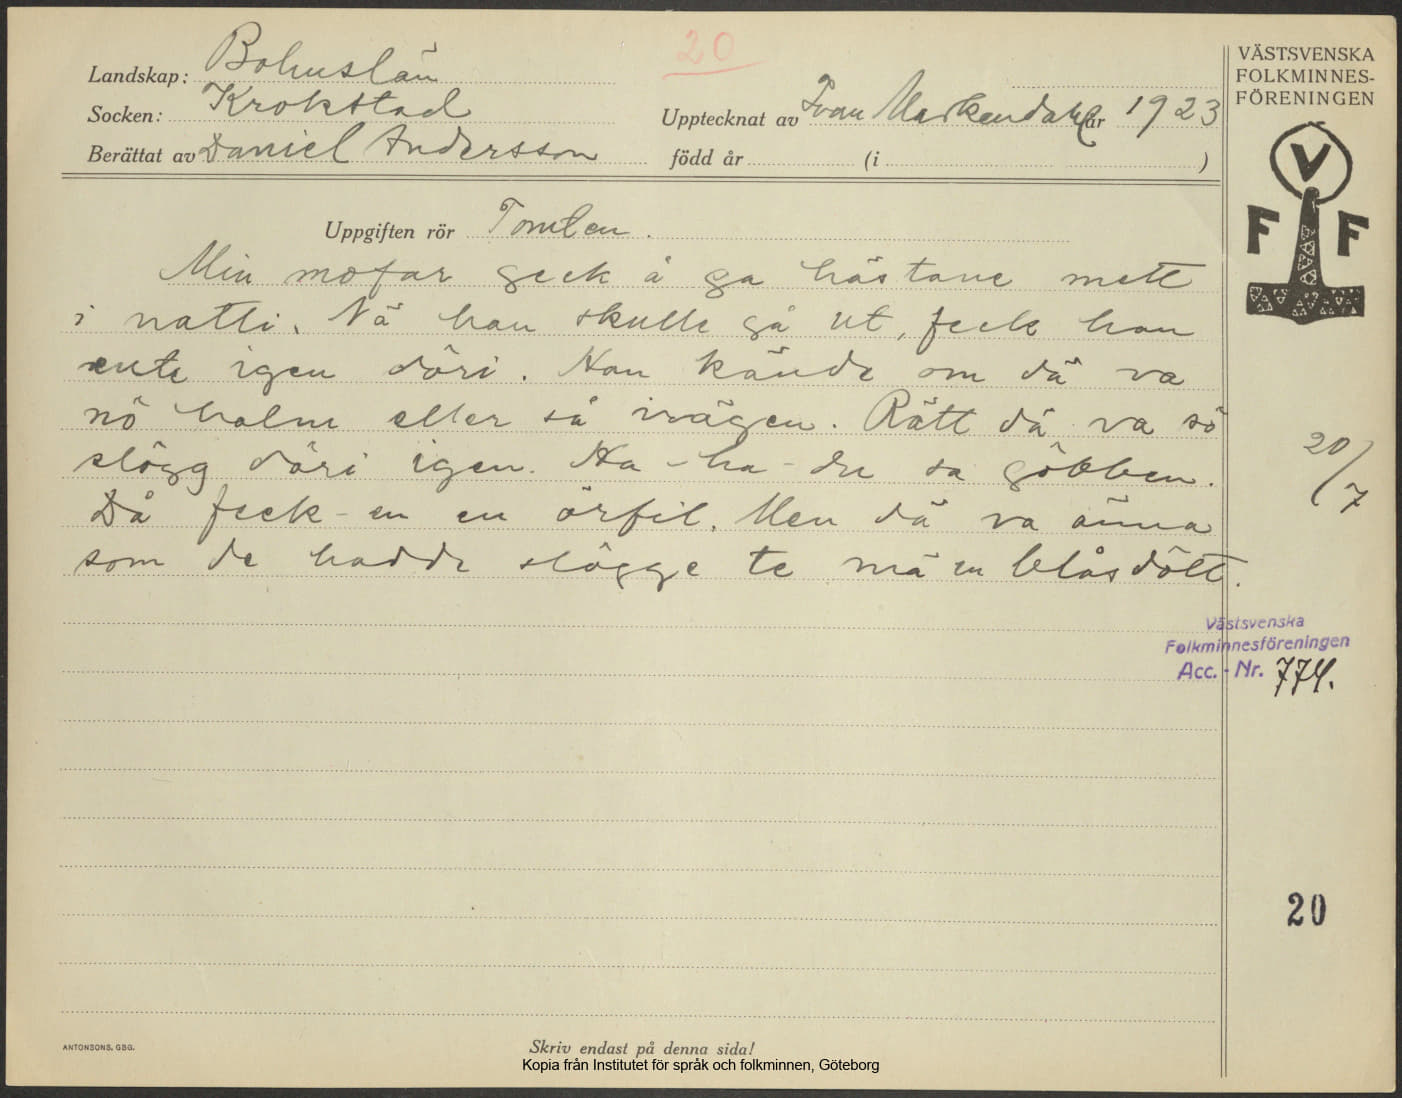 20
Landskap: Bohuslän
Socken: Krokstad
Upptecknat av Ivan Markendahl år 1923
Berättat av Daniel Andersson
född år (i )
Uppgiften rör Tomten.
Min mofar geck å ga hästane mett
i natti. Nä han skulle gå ut, feck han
ente igen döri. Han kände om dä va
nö halm eller så ivägen. Rätt dä va sö
slögg döri igen. Ha-ha-du sa göbben.
Då feck-en en örfil. Men dä va änna
som de hadde slögge te mä en blåsdött.
VÄSTSVENSKA
FOLKMINNES-
FÖRENINGEN
V
F F
20/7
Västsvenska
Folkminnesföreningen
Acc.-Nr. 774.
20
ANTONSONS, GBG.
Skriv endast på denna sida!
Kopia från Institutet för språk och folkminnen, Göteborg